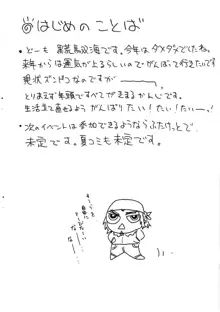 はじめのことば
・どーも 黒荒馬役海です。今年はダメダメでしたね。
来年からは運気が上るらしいので・がんばって行きたいです
現状ズンドコなのですが
とりあえず年頭ですべてがきまるかんじです。
生活まで直せるよう がんばり たい!たい!たい━!
・次のイベントは参加できるようなら ぷたけっとで
未定です。夏コミも未定です。